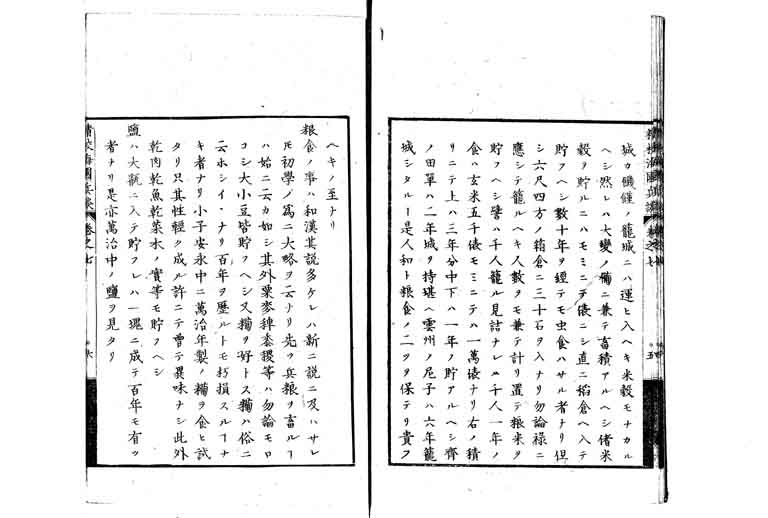 城カ饑饉ノ籠城ニハ運ヒ入ヘキ米穀モナカル
ヘシ然レハ大變ノ備ニ兼テ畜積アルヘシ偖米
穀ヲ貯ルニハモミニテ俵ニシ直ニ稻倉ヘ入テ
貯フヘシ數十年ヲ經テモ虫食ハサル者ナリ但
シ六尺四方ノ箱倉ニ三十石ヲ入ナリ勿論祿ニ
應シテ籠ルヘキ人數ヲモ兼テ計リ置テ粮米ヲ
貯フヘシ譬ハ千人籠ル見詰ナレハ千人一年ノ
食ハ玄米五千俵モミニテハ一萬俵ナリ右ノ積
リニテ上ハ三年分中下ハ一年ノ貯アルヘシ齊
ノ田單ハ二年城ヲ持堪ヘ雲州ノ尼子ハ六年籠
城シタルー是人和ト粮食ノ二ツヲ保テリ貴フ
精校海國兵談 卷之七 五
ヘキノ至ナリ
粮食ノ事ハ和漢其説多ケレハ新ニ説ニ及ハサレ
𪜈初學ノ爲ニ大略ヲ云ナリ先ツ兵粮ヲ畜ルー
ハ始ニ云カ如シ其外粟麥稗黍稷等ハ勿論モロ
コシ大小豆皆貯フヘシ又糒ヲ好トス糒ハ俗ニ
云ホシイ・ナリ百年ヲ歷ルトモ朽損スルーナ
キ者ナリ小子安永中ニ萬治年製ノ糒ヲ食ヒ試
タリ只其性輕ク成ル許ニテ曾テ異味ナシ此外
乾肉乾魚乾菜木ノ實等モ貯フヘシ
鹽ハ大瓶ニ入テ貯フレハ一塊ニ成テ百年モ有ッ
者ナリ是亦萬治中ノ鹽ヲ見タリ
精校海國兵談 卷之七 六